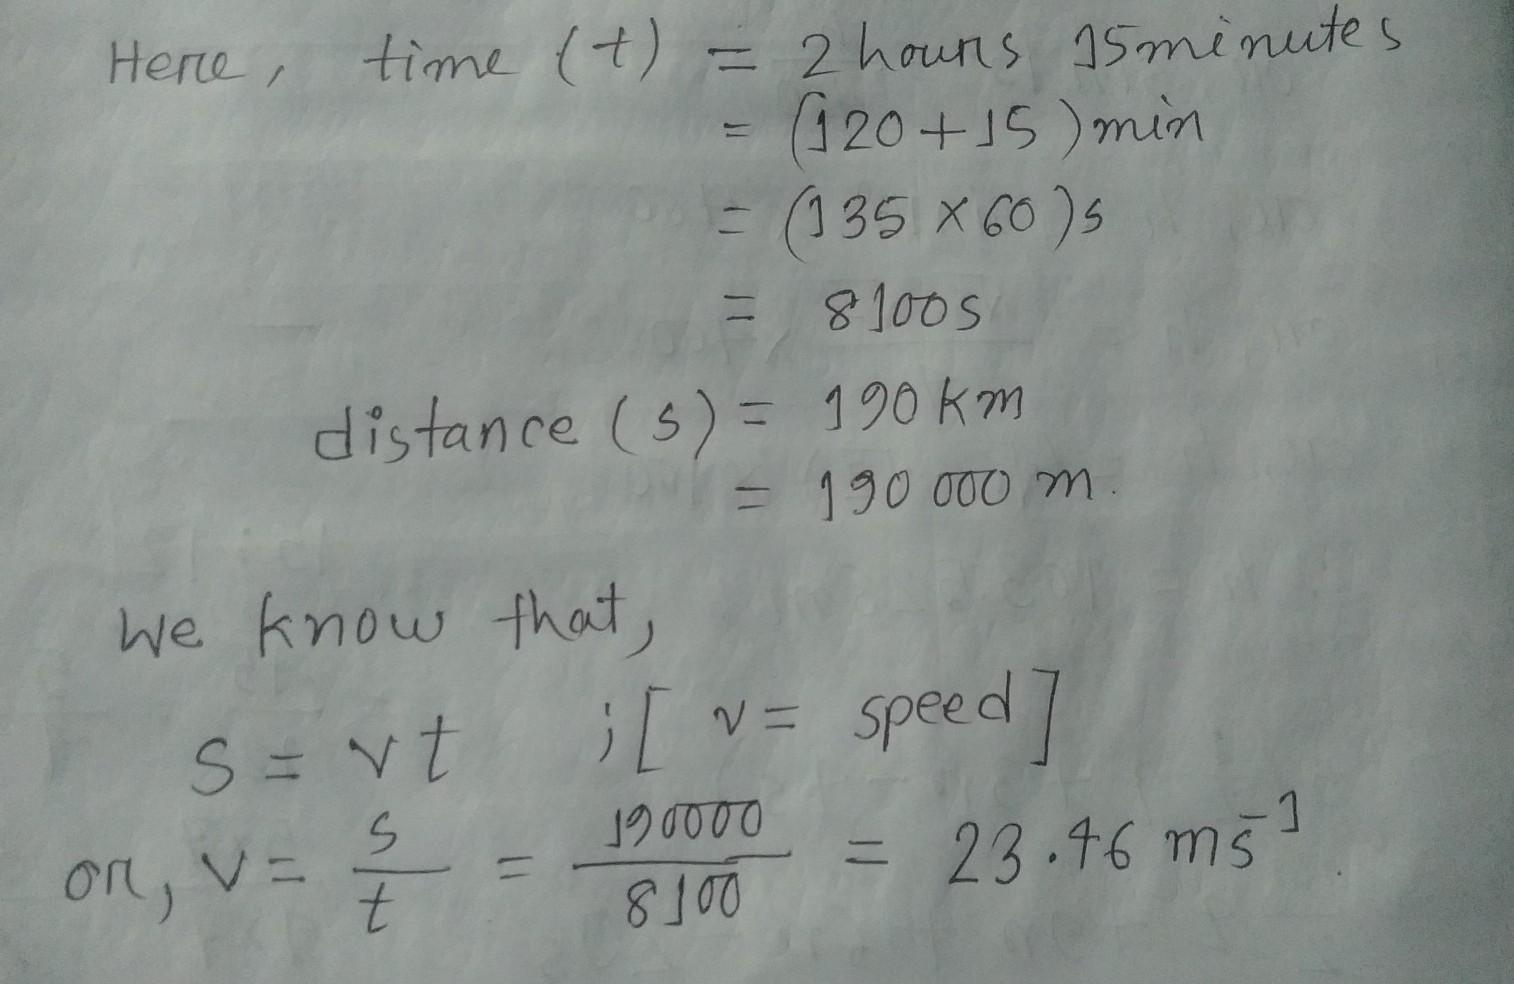 Here, time (t) = 2 hours 15 minutes
= (120 + 15) min
= (135 × 60)s
= 8100s
distance (s) = 190 km
= 190 000 m.
We know that,
s = vt ; [ v = speed ]
or, v = s/t = 190000/8100 = 23.46 ms⁻¹.